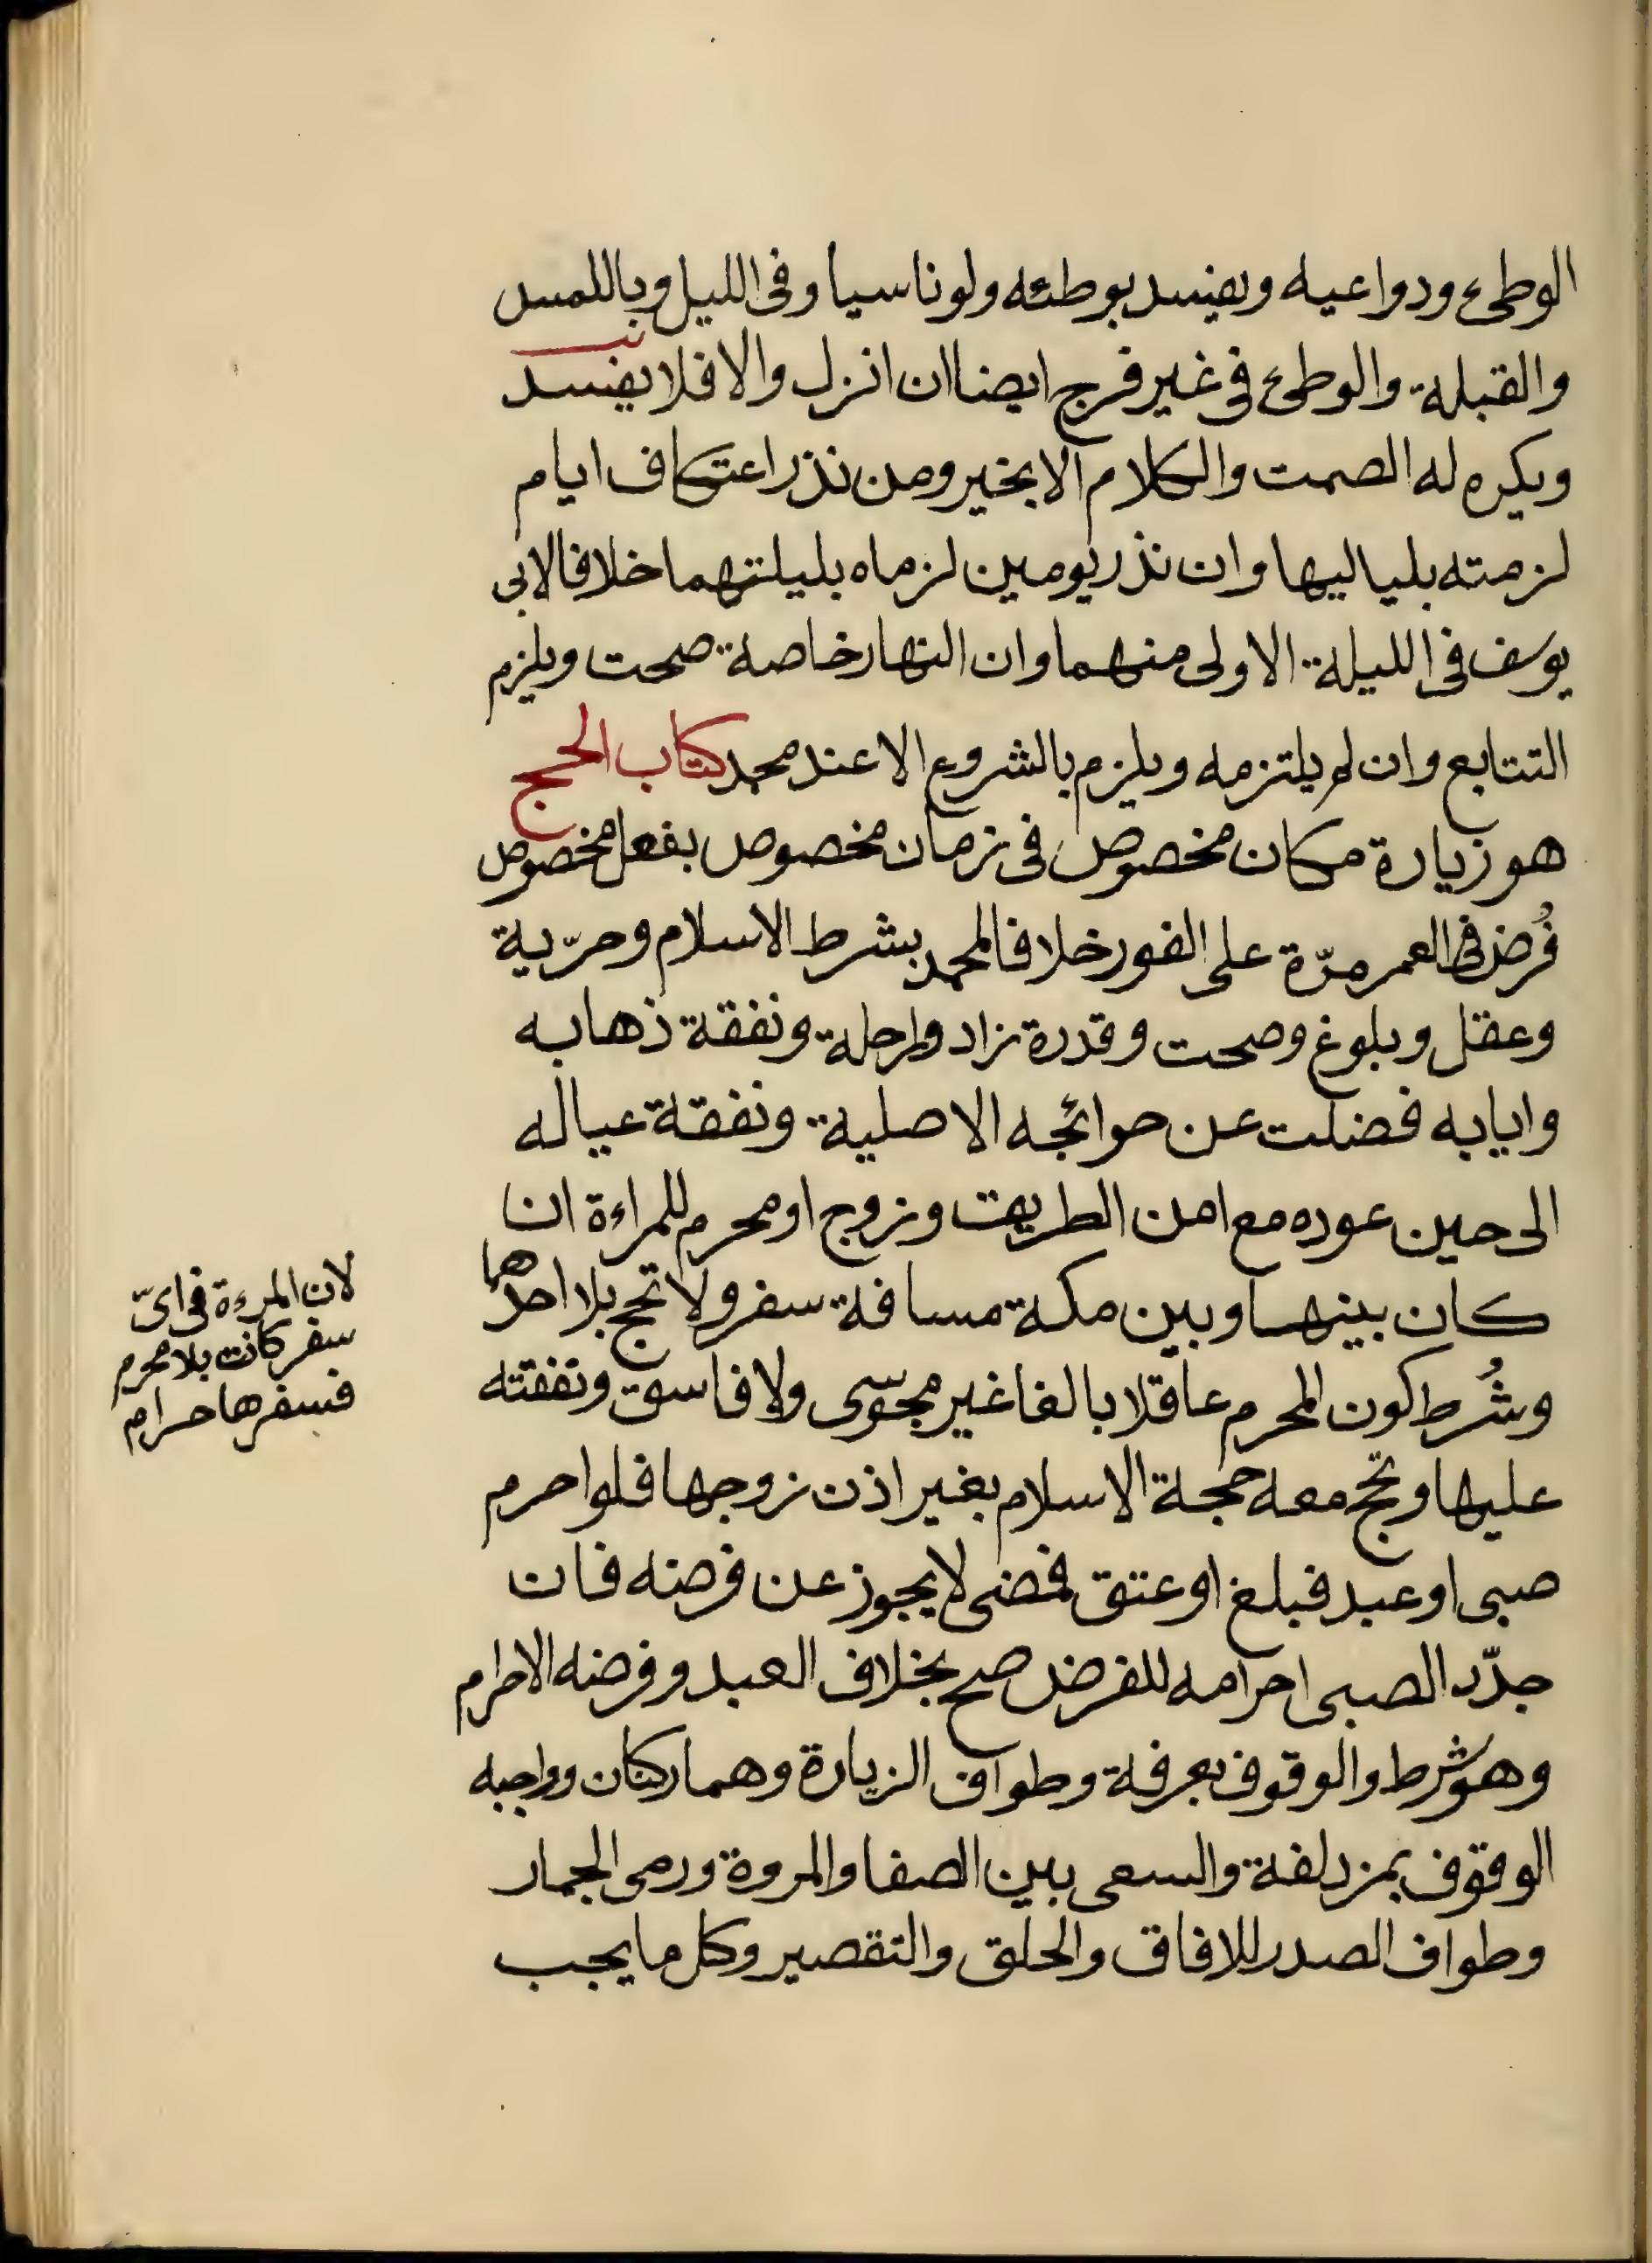 الوطئ ودواعيه ويفسد بوطئه ولو ناسيا وفى الليل وباللمس
والقبلة والوطئ فى غير فرج ايضا ان انزل والا فلا يفسد
ويكره له الصمت والكلام الا بخير ومن نذر اعتكاف ايام
لزمته بلياليها وان نذر يومين لزماه بليلتهما خلافا لابى
يوسف فى الليلة الاولى منهما وان النهار خاصة صحت ويلزم
التتابع وان لم يلتزمه ويلزم بالشروع الا عند محمد كتاب الحج
هو زيارة مكان مخصوص فى زمان مخصوص بفعل مخصوص
فُرض فى العمر مرّة على الفور خلافا لمحمد بشرط الاسلام وحرّية
وعقل وبلوغ وصحت وقدرة زاد وراحلة ونفقة ذهابه
وايابه فضلت عن حوائجه الاصلية ونفقة عياله
الى حين عوده مع امن الطريق وزوج او محرم للمراءة ان
كان بينها وبين مكة مسافة سفر ولا تحج بلا احدهما
وشُرط كون المحرم عاقلا بالغا غير مجوسى ولا فاسق ونفقته
عليها وتحج معه حجة الاسلام بغير اذن زوجها فلو احرم
صبى او عبد فبلغ او عتق فمضى لا يجوز عن فرضه فان
جدّد الصبى احرامه للفرض صح بخلاف العبد وفرضه الاحرام
وهو شرط والوقوف بعرفة وطواف الزيارة وهما ركنان وواجبه
الوقوف بمزدلفة والسعى بين الصفا والمروة ورمى الجمار
وطواف الصدر للافاق والحلق والتقصير وكل ما يجب
لان المرءة فى اىّ
سفر كانت بلا محرم
فسفرها حرام